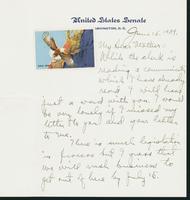 United States Senate
WASHINGTON, D.C.
June 15, 1939.
My dear Mother:
While the clerk is
reading a communication
which I have already
read I will have
just a word with you. I would
be very lonely if I missed my
letter the year and your letter
to me.
There is much legislation
in process but I guess that
we will rush business to
get out of here by July 15.